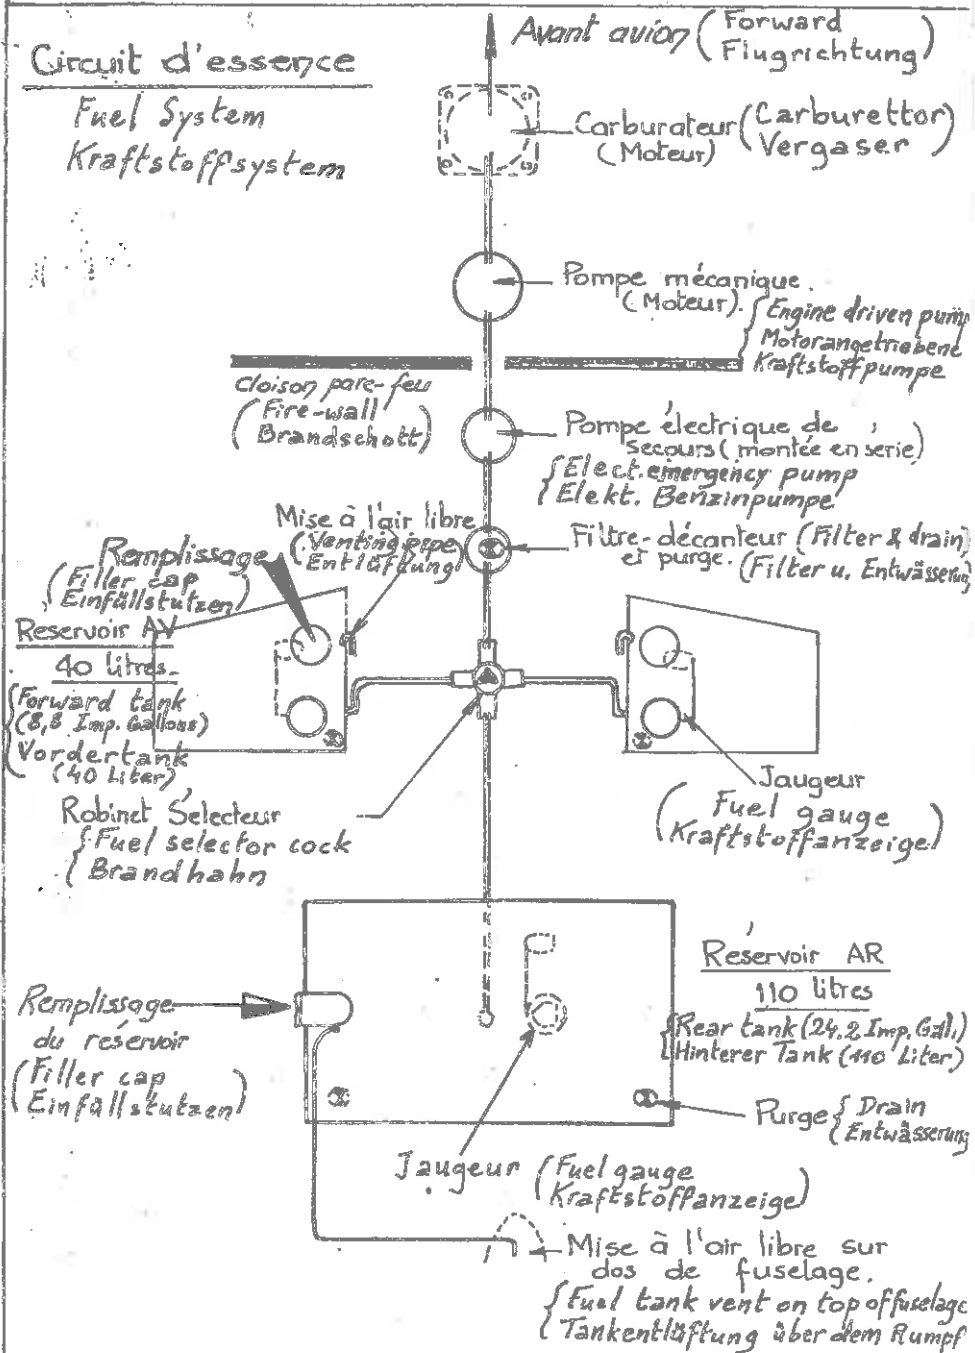 Avant avion (Forward
Flugrichtung)
Circuit d'essence
Fuel System
Kraftstoffsystem
Carburateur (Carburettor)
(Moteur) Vergaser
Pompe mécanique.
(Moteur).
Engine driven pump
Motorangetriebene
Kraftstoffpumpe
Cloison pare-feu
(Fire-wall
Brandschott)
Pompe électrique de
secours (montée en série)
Elect. emergency pump
Elekt. Benzinpumpe
Mise à l'air libre
(Venting pipe)
Entlüftung
Filtre-décanteur (Filter & drain)
et purge. (Filter u. Entwässerung)
Remplissage
(Filler cap
Einfüllstutzen)
Reservoir AV
40 litres.
Forward tank
(8,8 Imp. Gallons)
Vordertank
(40 Liter)
Robinet Sélecteur
Fuel selector cock
Brandhahn
Jaugeur
(Fuel gauge
Kraftstoffanzeige)
Réservoir AR
110 litres
Rear tank (24.2 Imp. Gall.)
Hinterer Tank (110 Liter)
Remplissage
du réservoir
(Filler cap
Einfüllstutzen)
Purge { Drain
Entwässerung
Jaugeur (Fuel gauge
Kraftstoffanzeige)
Mise à l'air libre sur
dos de fuselage.
Fuel tank vent on top of fuselage
Tankentlüftung über dem Rumpf